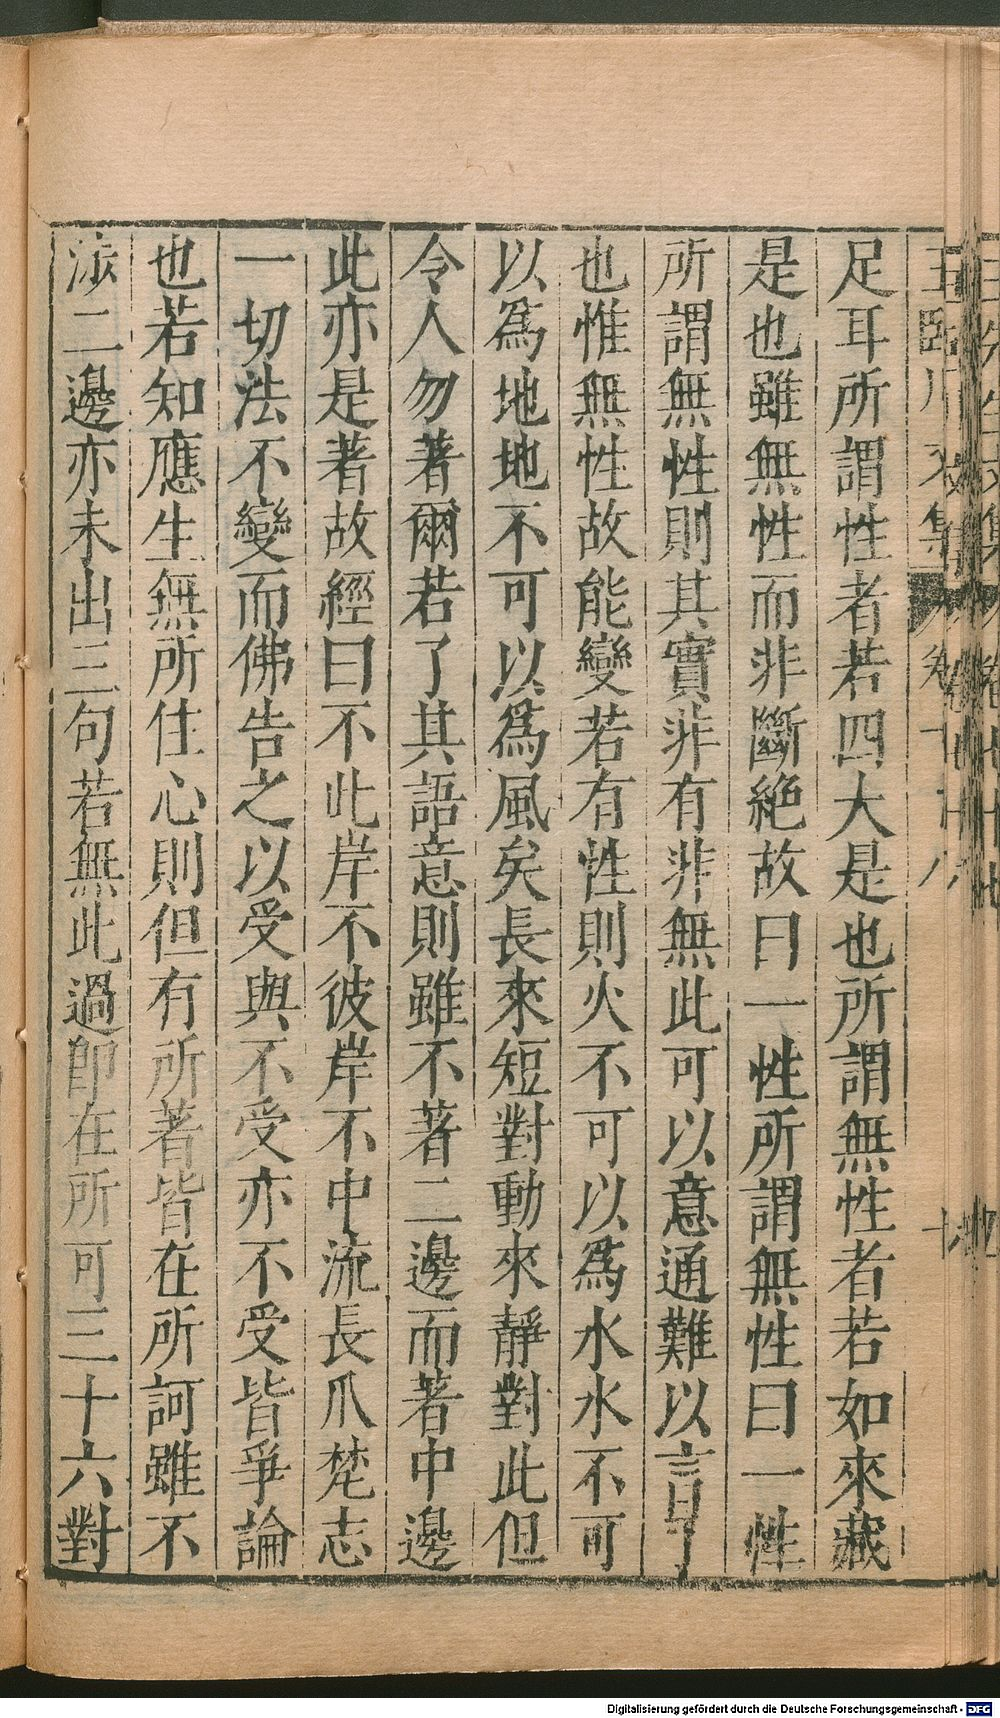 足耳所謂性者若四大是也所謂無性者若如來藏
是也雖無性而非斷絕故曰一性所謂無性曰一性
所謂無性則其實非有非無此可以意通難以言了
也惟無性故能變若有性則火不可以為水水不可
以為地地不可以為風矣長來短對動來靜對此但
令人勿著爾若了其語意則雖不著二邊而著中邊
此亦是著故經曰不此岸不彼岸不中流長爪梵志
一切法不變而佛告之以受與不受亦不受皆爭論
也若知應生無所住心則但有所著皆在所訶雖不
涉二邊亦未出三句若無此過即在所可三十六對
Digitalisierung gefördert durch die Deutsche Forschungsgemeinschaft - DFG